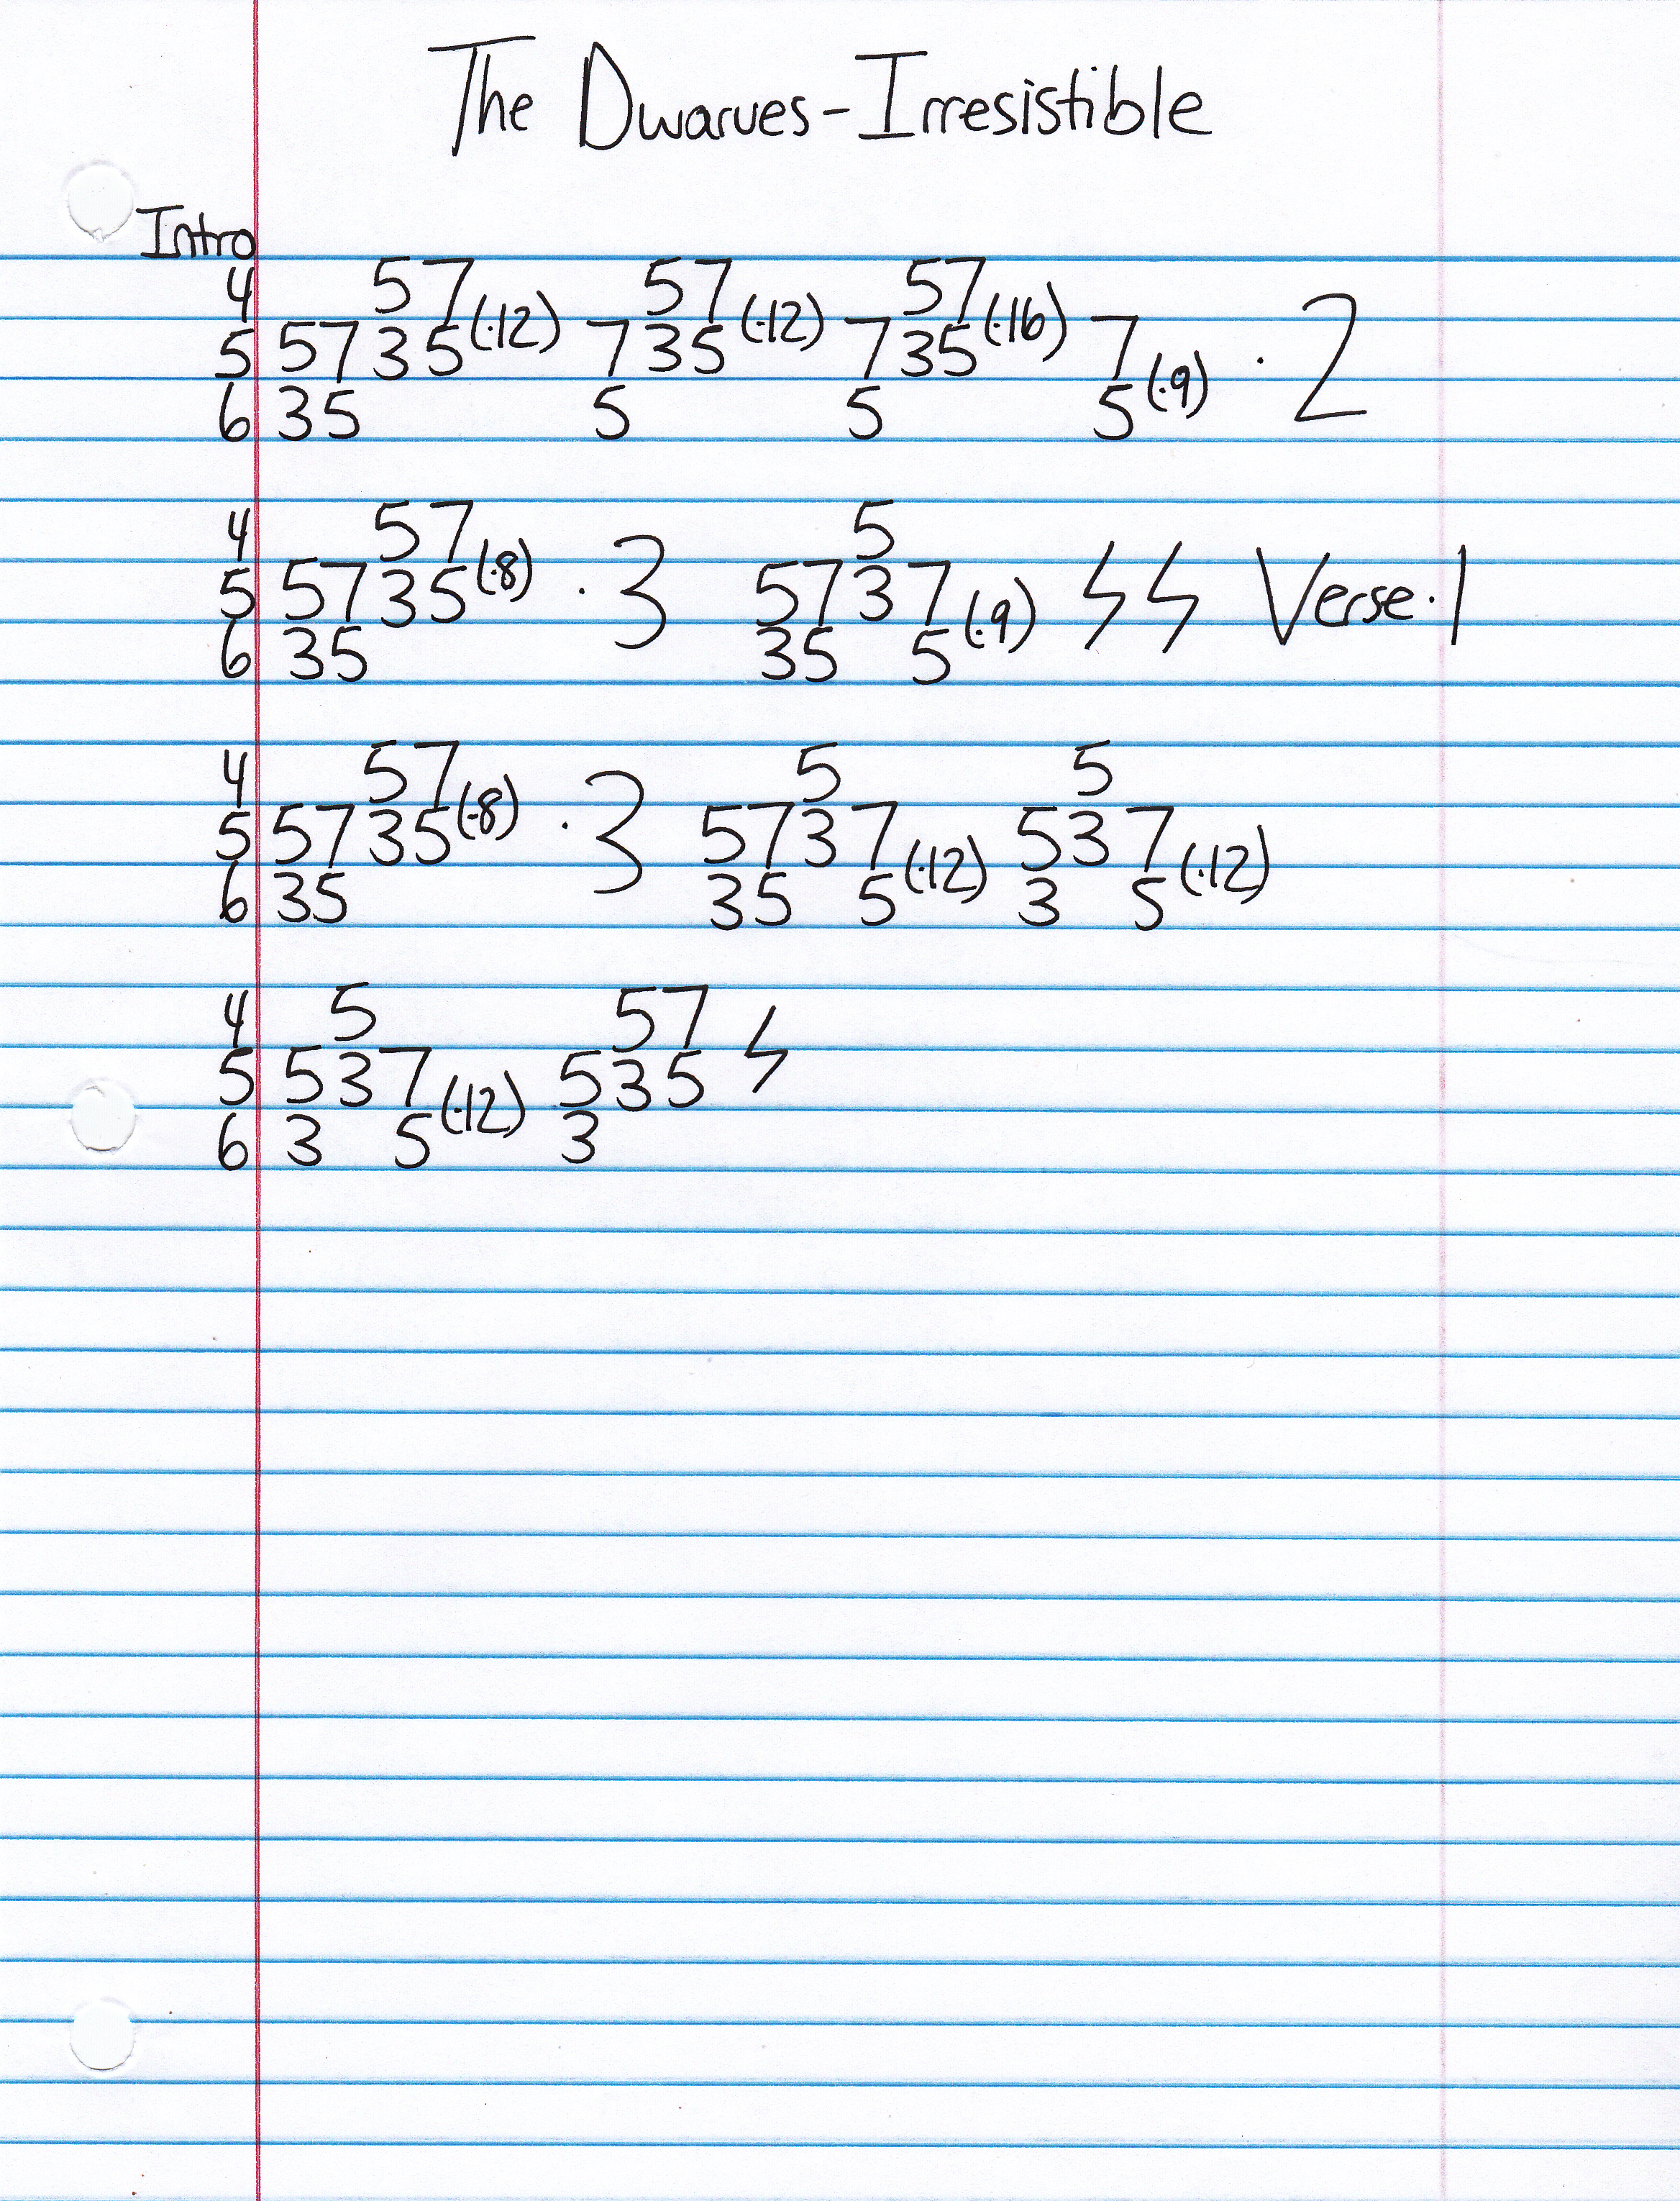 The Dwarves-Irresistible
Intro
4 57 57 57
5 5735(·12) 735(·12) 735(·16) 7 · 2
6 35 5 5 5(·9)
4 57 5
5 5735(·8) · 3 5737 ϟ ϟ Verse·1
6 35 35 5(·9)
4 57 5 5
5 5735(·8) · 3 5737 537
6 35 35 5(·12) 3 5(·12)
4 5 57
5 537 535 ϟ
6 3 5(·12) 3